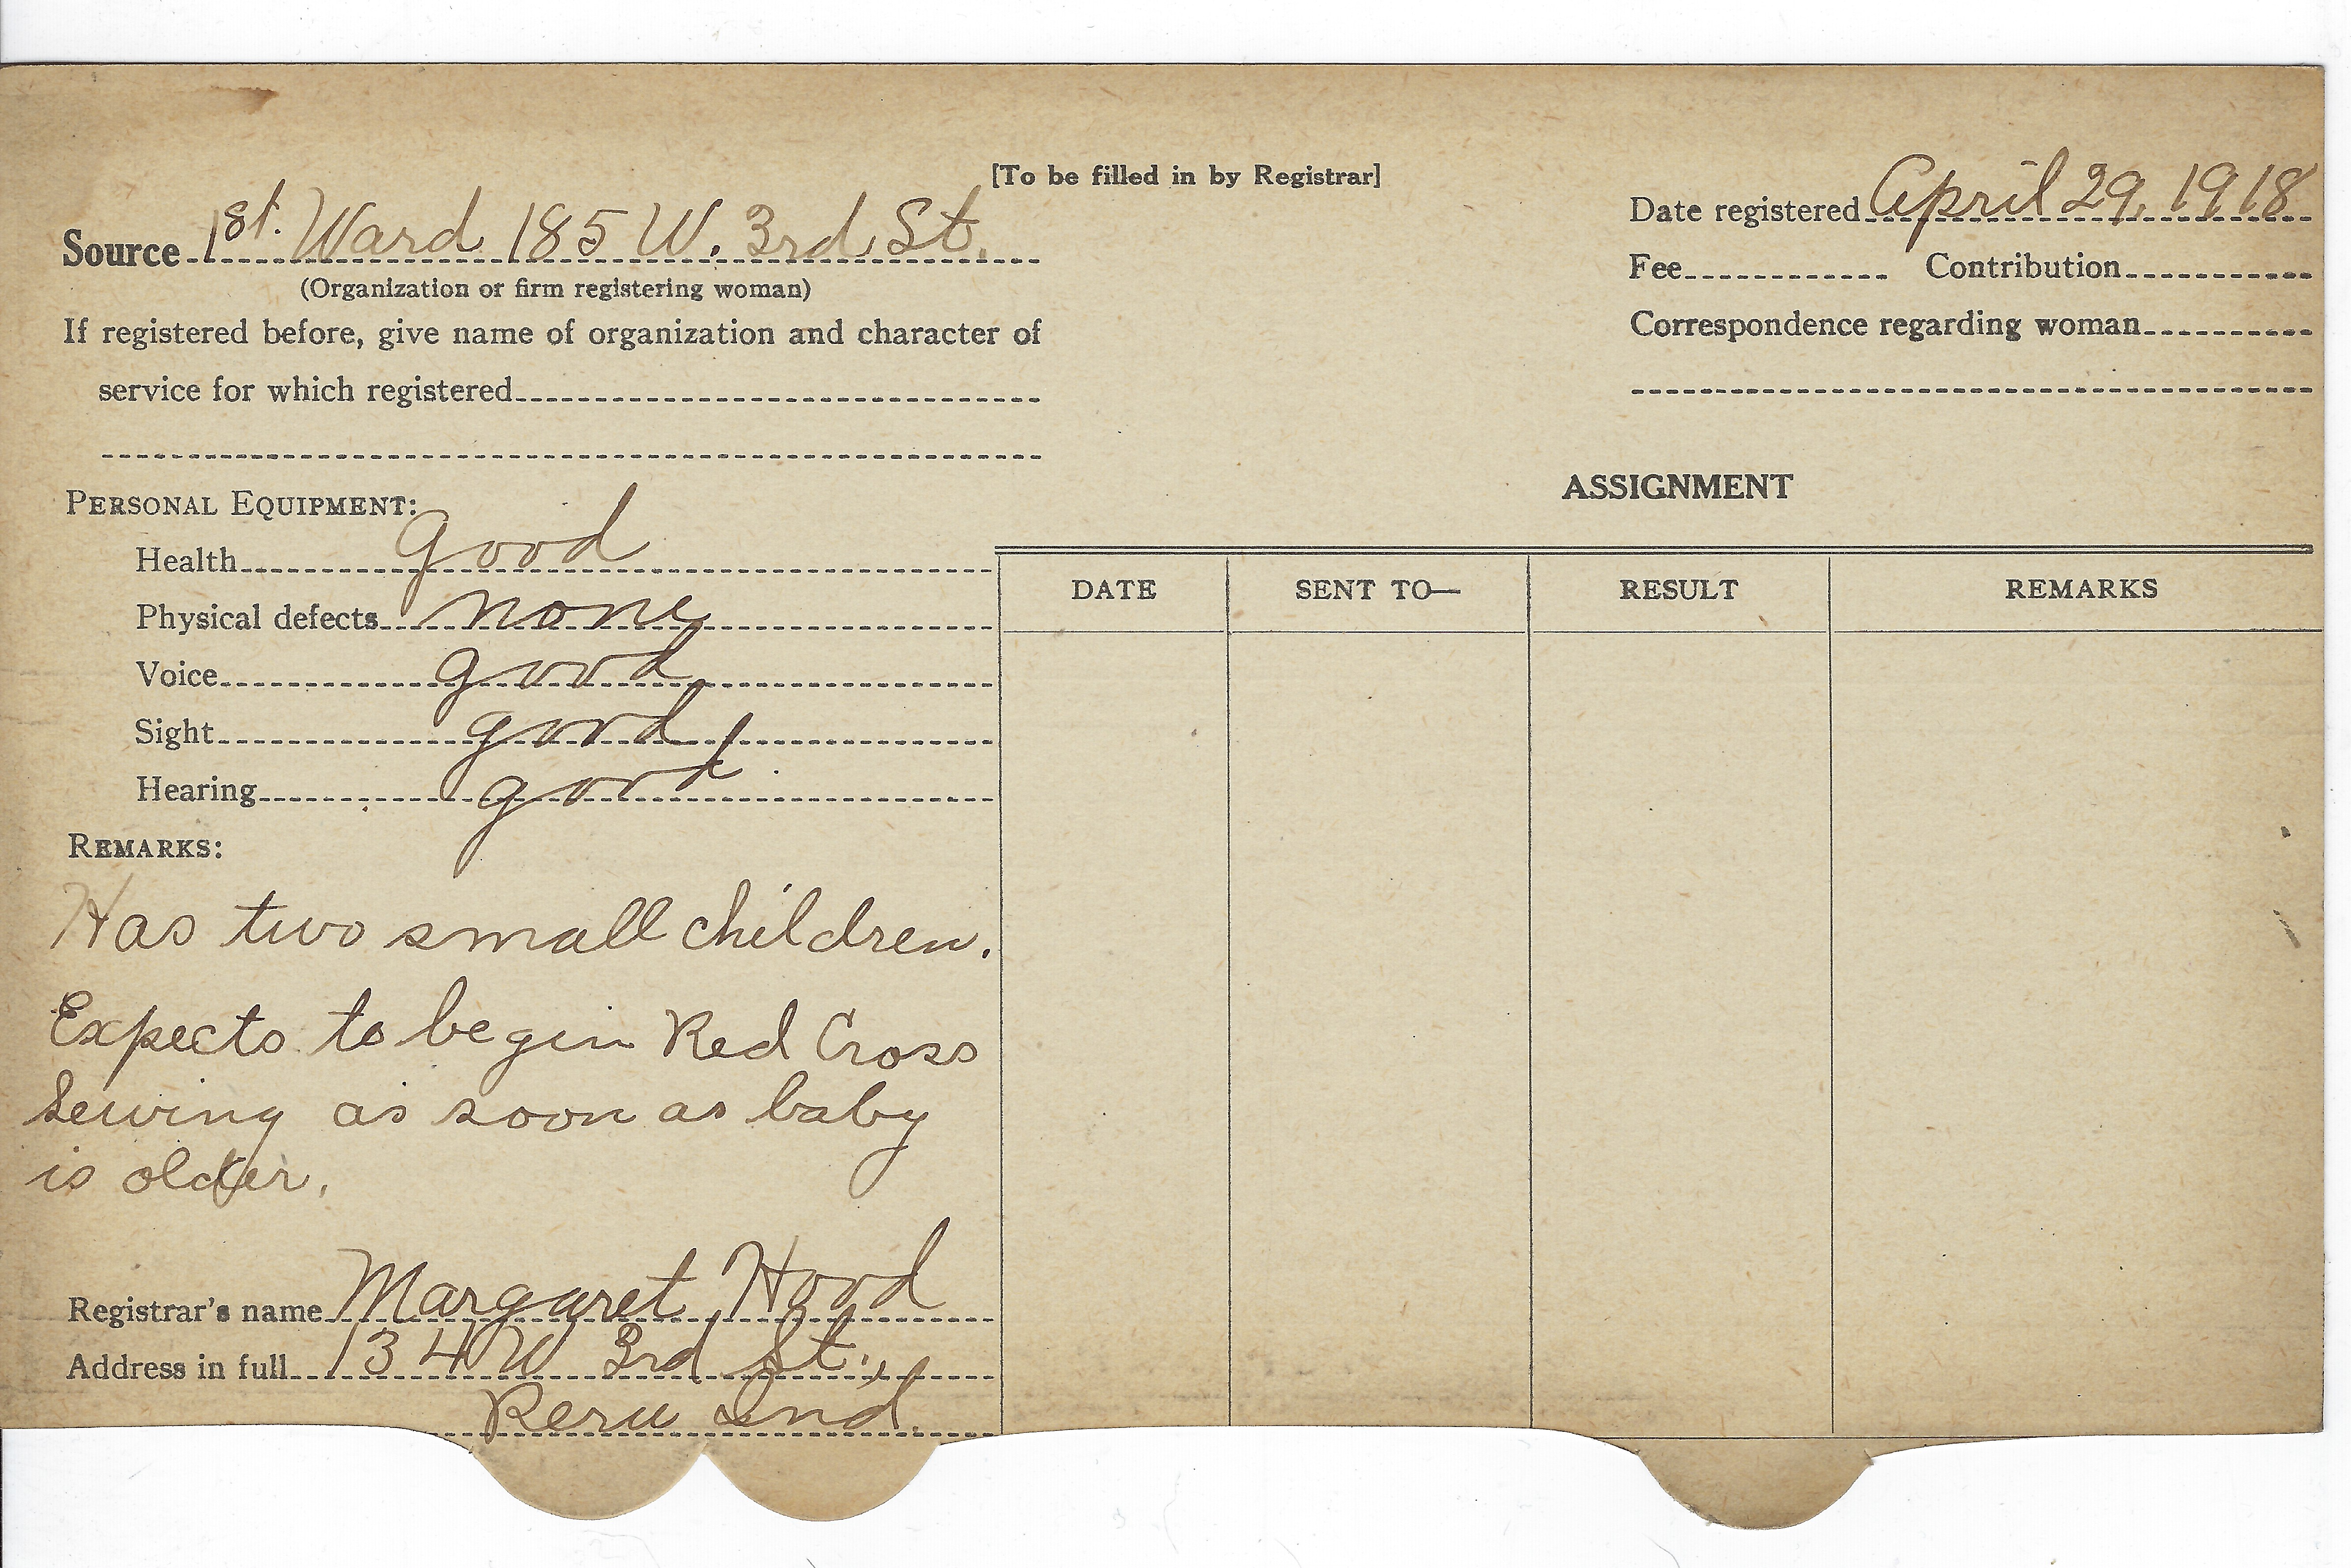 [To be filled in by Registrar]
Source 1st. Ward 185 W. 3rd St.
(Organization or firm registering woman)
If registered before, give name of organization and character of
service for which registered
Date registered April 29, 1918
Fee Contribution
Correspondence regarding woman
PERSONAL EQUIPMENT:
Health good
Physical defects none
Voice good
Sight good
Hearing good
REMARKS:
Has two small children.
Expects to begin Red Cross
Sewing as soon as baby
is older.
Registrar's name Margaret Hood
Address in full 134 W 3rd St.,
Peru Ind.
ASSIGNMENT
DATE SENT TO— RESULT REMARKS